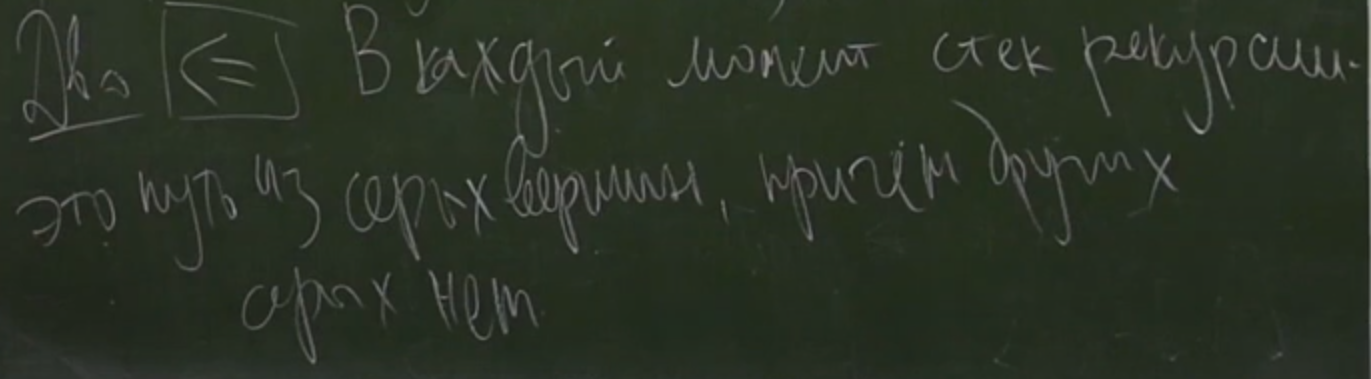 Д-во [⇐] В каждый момент стек рекурсии -
это путь из серых вершин, причём других
серых нет.